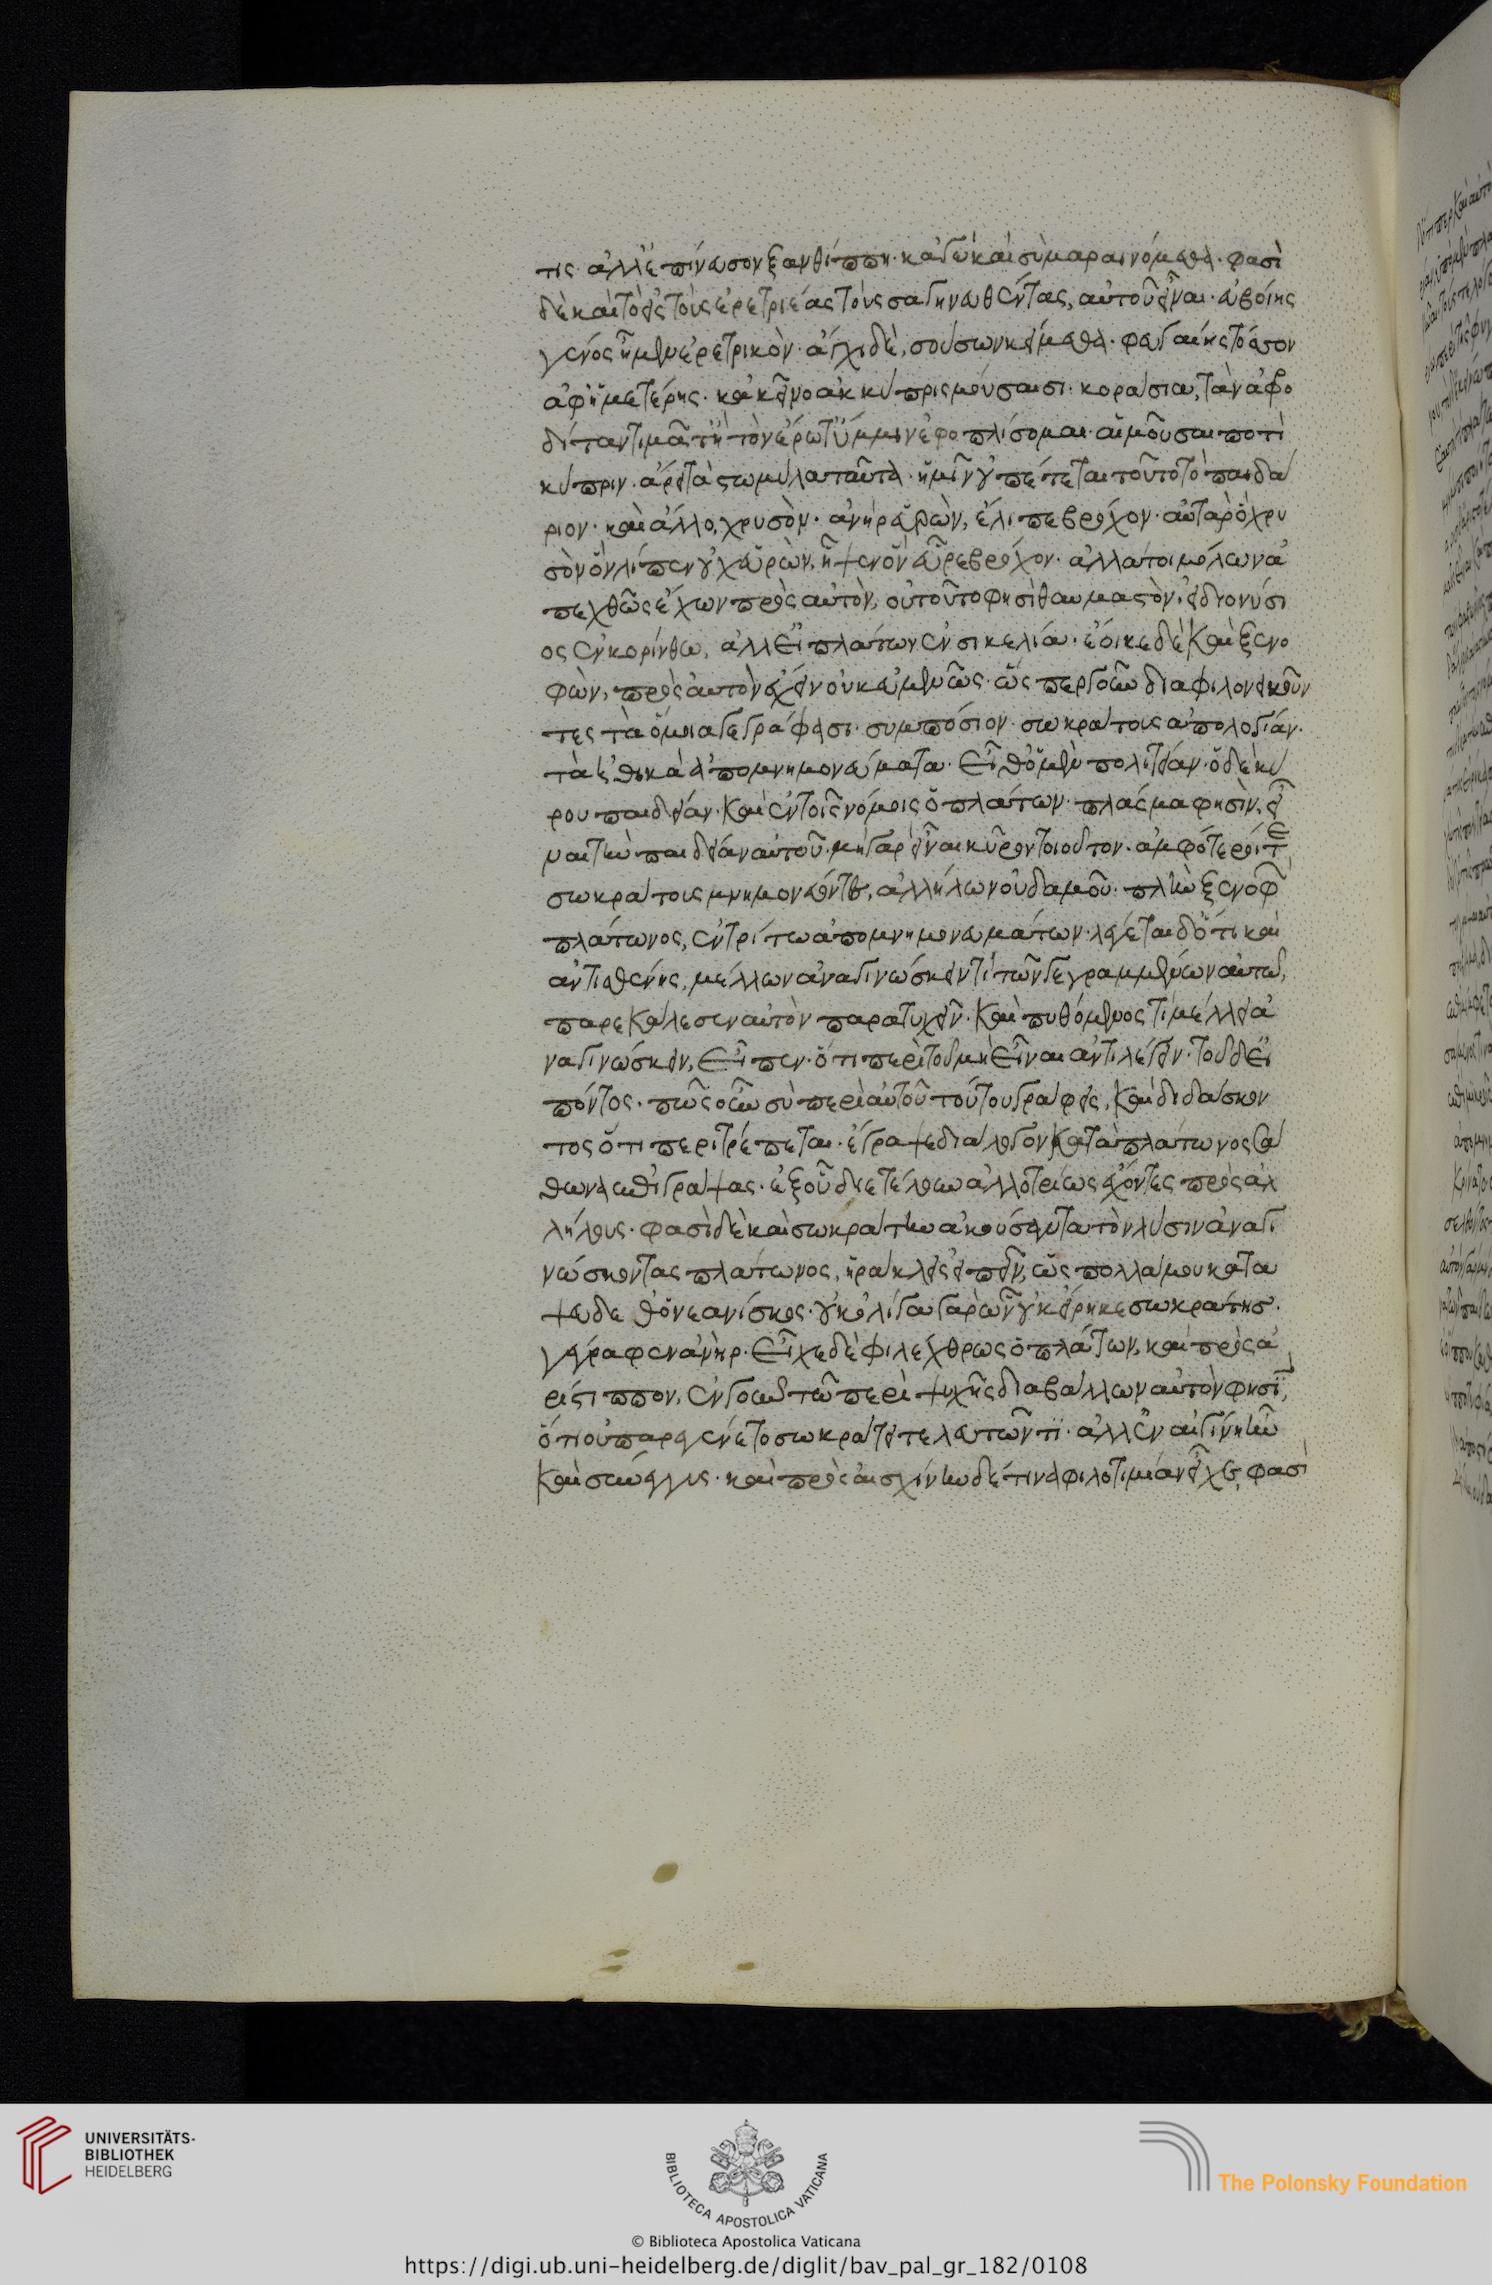 τις· ἀλλ' ἐπίνευσον ξανθίππη· κἀγὼ καὶ σὺ μαραινόμεθα· φασὶ
δὲ καὶ τὸ εἰς τοὺς ἐρετριέας τοὺς σαγηνευθέντας, αὐτοῦ εἶναι· εὐβοίης
γένος ἦμεν ἐρετρικὸν· ἄγχι δὲ, σούσων κείμεθα· φεῦ γαίης τόσσον
ἀφ' ἡμετέρης· κἀκεῖνο ἁ κύπρις μούσαισι· κοράσια, τὰν ἀφρο
δίταν τιμᾶτ' ἢ τὸν ἔρωτ' ὔμμιν ἐφοπλίσομαι· αἱ μοῦσαι ποτὶ
κύπριν· ἄρει τὰ στωμύλα ταῦτα· ἡμῖν οὐ πέτεται τοῦτο τὸ παιδά
ριον· καὶ ἄλλο, χρυσὸν· ἀνὴρ εὑρὼν, ἔλιπε βρόχον· αὐτὰρ ὁ χρυ
σὸν ὃν λίπεν οὐχ εὑρὼν, ἧψεν ὃν εὗρε βρόχον· ἀλλά τοι μόλων ἀ
πεχθῶς ἔχων πρὸς αὐτὸν, οὐ τοῦτο φησὶ θαυμαστὸν, εἰ διονύσι
ος ἐν κορίνθω, ἀλλ' εἰ πλάτων ἐν σικελία· ἔοικε δὲ καὶ ξενο
φῶν, πρὸς αὐτὸν ἔχειν οὐκ εὐμενῶς· ὥσπερ γοῦν διαφιλονεικοῦν
τες τὰ ὅμοια γεγράφασι· συμπόσιον· σωκράτους ἀπολογίαν·
τὰ ἠθικὰ ἀπομνημονεύματα· εἶθ' ὁ μὲν πολιτείαν· ὁ δὲ κύ
ρου παιδείαν· καὶ ἐν τοῖς νόμοις ὁ πλάτων· πλάσμα φησὶν, εἶ
ναι τὴν παιδείαν αὐτοῦ· μὴ γὰρ εἶναι κῦρον τοιοῦτον· ἀμφότεροί τε
σωκράτους μνημονεύοντες, ἀλλήλων οὐδαμοῦ· πλὴν ξενοφῶν
πλάτωνος, ἐν τρίτω ἀπομνημονευμάτων· λέγεται δ' ὅτι καὶ
ἀντισθένης, μέλλων ἀναγινώσκειν τί τῶν γεγραμμένων αὐτῶ,
παρεκάλεσεν αὐτὸν παρατυχεῖν· καὶ πυθόμενος τί μέλλει ἀ
ναγινώσκειν, εἶπεν· ὅτι περὶ τοῦ μὴ εἶναι ἀντιλέγειν· τοῦ δ' εἰ
πόντος· πῶς οὖν σὺ περὶ αὐτοῦ τούτου γράφεις, καὶ διδάσκον
τος ὅτι περιτρέπεται· ἔγραψε διάλογον κατὰ πλάτωνος σά
θωνα ἐπιγράψας· ἐξ οὗ διετέλουν ἀλλοτρίως ἔχοντες πρὸς ἀλ
λήλους· φασὶ δὲ καὶ σωκράτην ἀκούσαντα τὸν λύσιν ἀναγι
νώσκοντας πλάτωνος, ἡράκλεις εἰπεῖν, ὡς πολλά μου κατα
ψεύδεθ' ὁ νεανίσκος· οὐκ ὀλίγα γὰρ ὧν οὐκ εἴρηκε σωκράτης·
γέγραφεν ἁνὴρ· εἶχε δὲ φιλέχθρως ὁ πλάτων, καὶ πρὸς ἀ
ρίστιππον, ἐν γοῦν τῶ περὶ ψυχῆς διαβάλλων αὐτὸν φησὶ,
ὅτι οὐ παρεγένετο σωκράτει τελευτῶντι· ἀλλ' ἐν αἰγίνη ἦν
καὶ σύνεγγυς· καὶ πρὸς αἰσχίνην δέ τινα φιλοτιμίαν εἶχε, φασὶ
UNIVERSITÄTS-
BIBLIOTHEK
HEIDELBERG
BIBLIOTECA APOSTOLICA VATICANA
The Polonsky Foundation
© Biblioteca Apostolica Vaticana
https://digi.ub.uni-heidelberg.de/diglit/bav_pal_gr_182/0108